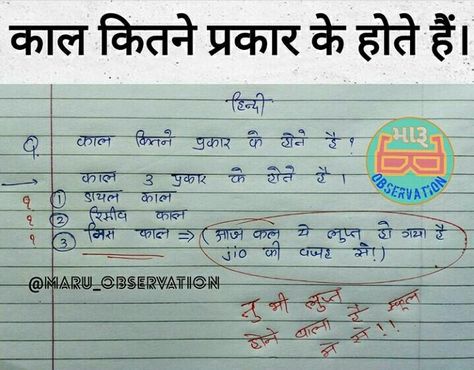 काल कितने प्रकार के होते हैं।
हिन्दी
Q. काल कितने प्रकार के होते है ?
→ काल 3 प्रकार के होते है ।
१ ① डायल काल
१ ② रिसीव काल
१ ③ मिस काल ⇒ ( आज कल ये लुप्त हो गया है
jio की वजह से! )
મારૂ
OBSERVATION
@MARU_OBSERVATION
तु भी लुप्त
होने वाला है स्कूल
मे से !!